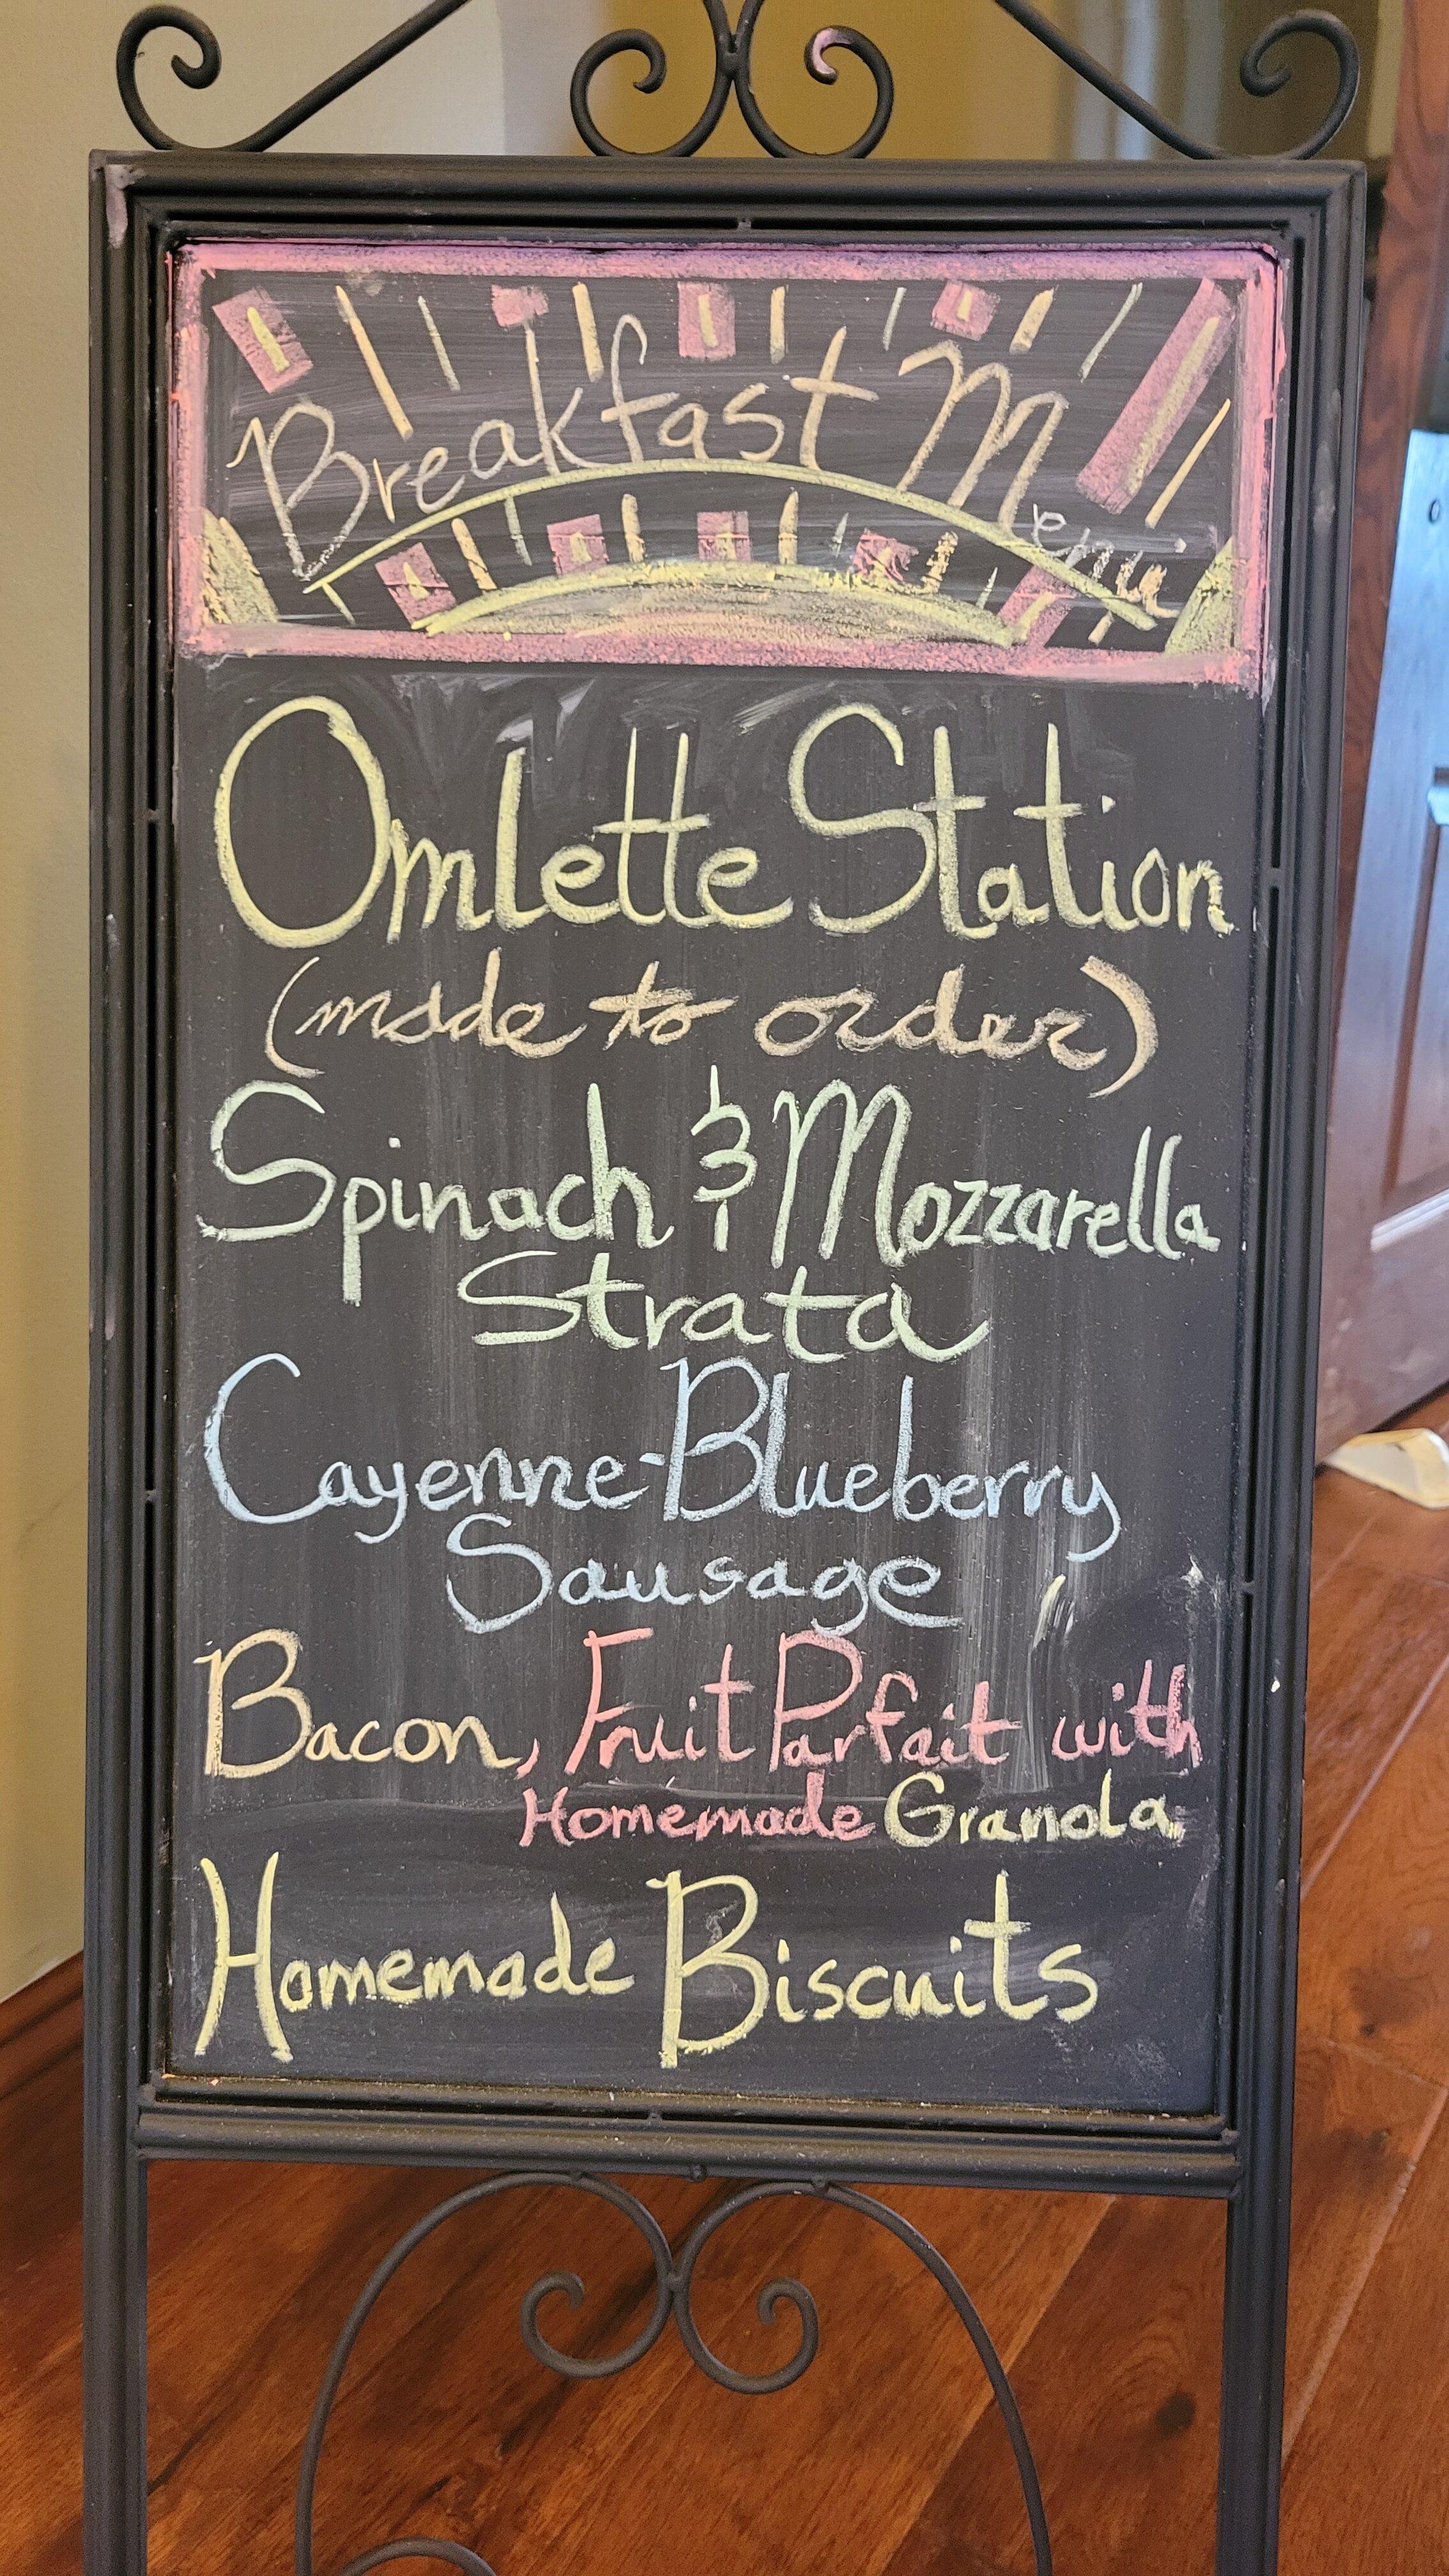 Breakfast Menu
Omlette Station
(made to order)
Spinach & Mozzarella
Strata
Cayenne-Blueberry
Sausage
Bacon, Fruit Parfait with
Homemade Granola
Homemade Biscuits